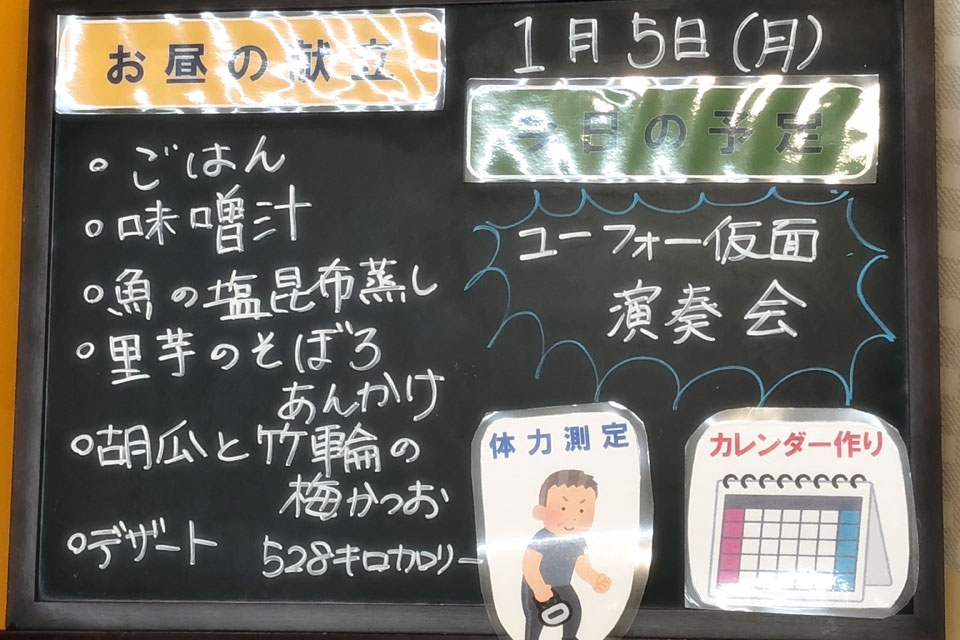 お昼の献立
○ごはん
○味噌汁
○魚の塩昆布蒸し
○里芋のそぼろ
あんかけ
○胡瓜と竹輪の
梅かつお
○デザート
528キロカロリー
1月5日(月)
今日の予定
ユーフォー仮面
演奏会
体力測定
カレンダー作り